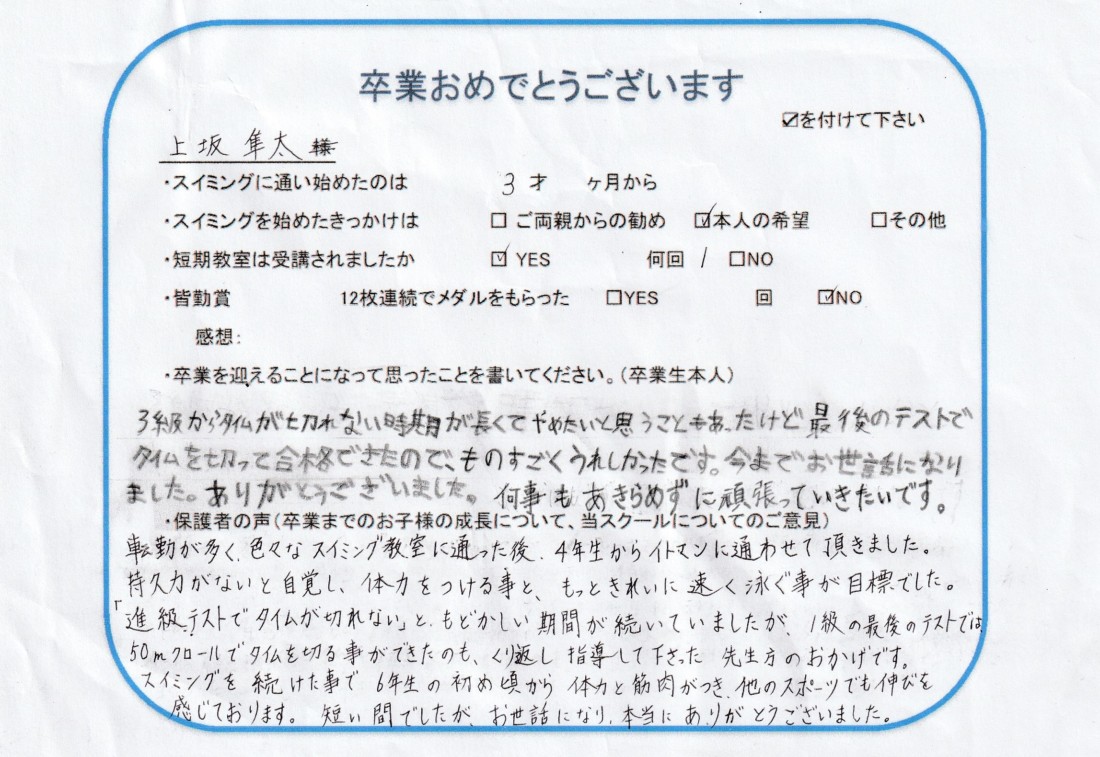 卒業おめでとうございます
☑を付けて下さい
上坂 隼太 様
・スイミングに通い始めたのは 3 才 ヶ月から
・スイミングを始めたきっかけは □ ご両親からの勧め ☑本人の希望 □その他
・短期教室は受講されましたか ☑ YES 何回 / □NO
・皆勤賞 12枚連続でメダルをもらった □YES 回 ☑NO
感想:
・卒業を迎えることになって思ったことを書いてください。(卒業生本人)
3級からタイムが切れない時期が長くてやめたいと思うこともあったけど最後のテストで
タイムを切って合格できたので、ものすごくうれしかったです。今までお世話になり
ました。ありがとうございました。何事もあきらめずに頑張っていきたいです。
・保護者の声(卒業までのお子様の成長について、当スクールについてのご意見)
転勤が多く、色々なスイミング教室に通った後、4年生からイトマンに通わせて頂きました。
持久力がないと自覚し、体力をつける事と、もっときれいに速く泳ぐ事が目標でした。
「進級テストでタイムが切れない」と、もどかしい期間が続いていましたが、1級の最後のテストでは、
50mクロールでタイムを切る事ができたのも、くり返し指導して下さった先生方のおかげです。
スイミングを続けた事で6年生の初め頃から体力と筋肉がつき、他のスポーツでも伸びを
感じております。短い間でしたが、お世話になり、本当にありがとうございました。